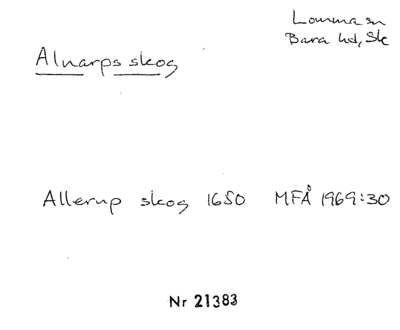 Lomma sn
Bara hd, Sk
Alnarps skog
Allerup skog 1650 MFÅ 1969:30
Nr 21383